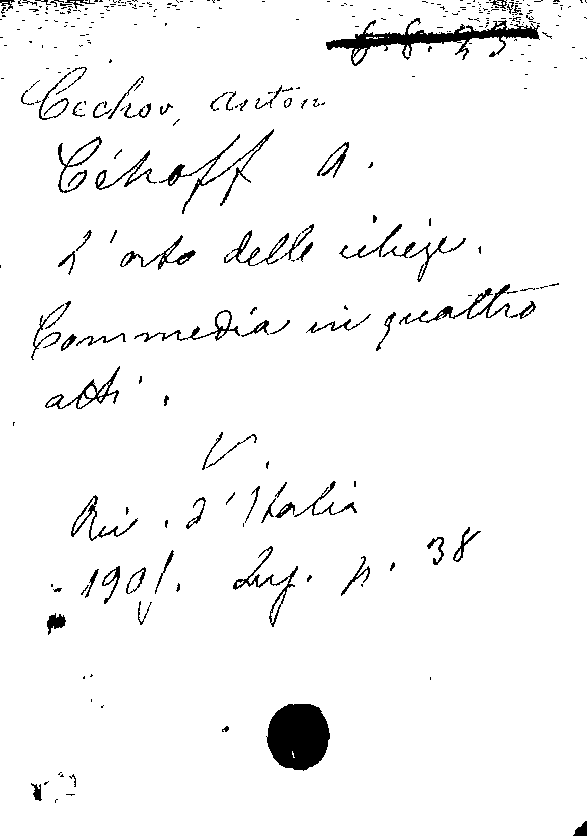 6.6.23
Cechov, Anton
Céhoff A.
L'orto delle ciliege.
Commedia in quattro
atti.
V.
Riv. d'Italia
Lug. p. 38